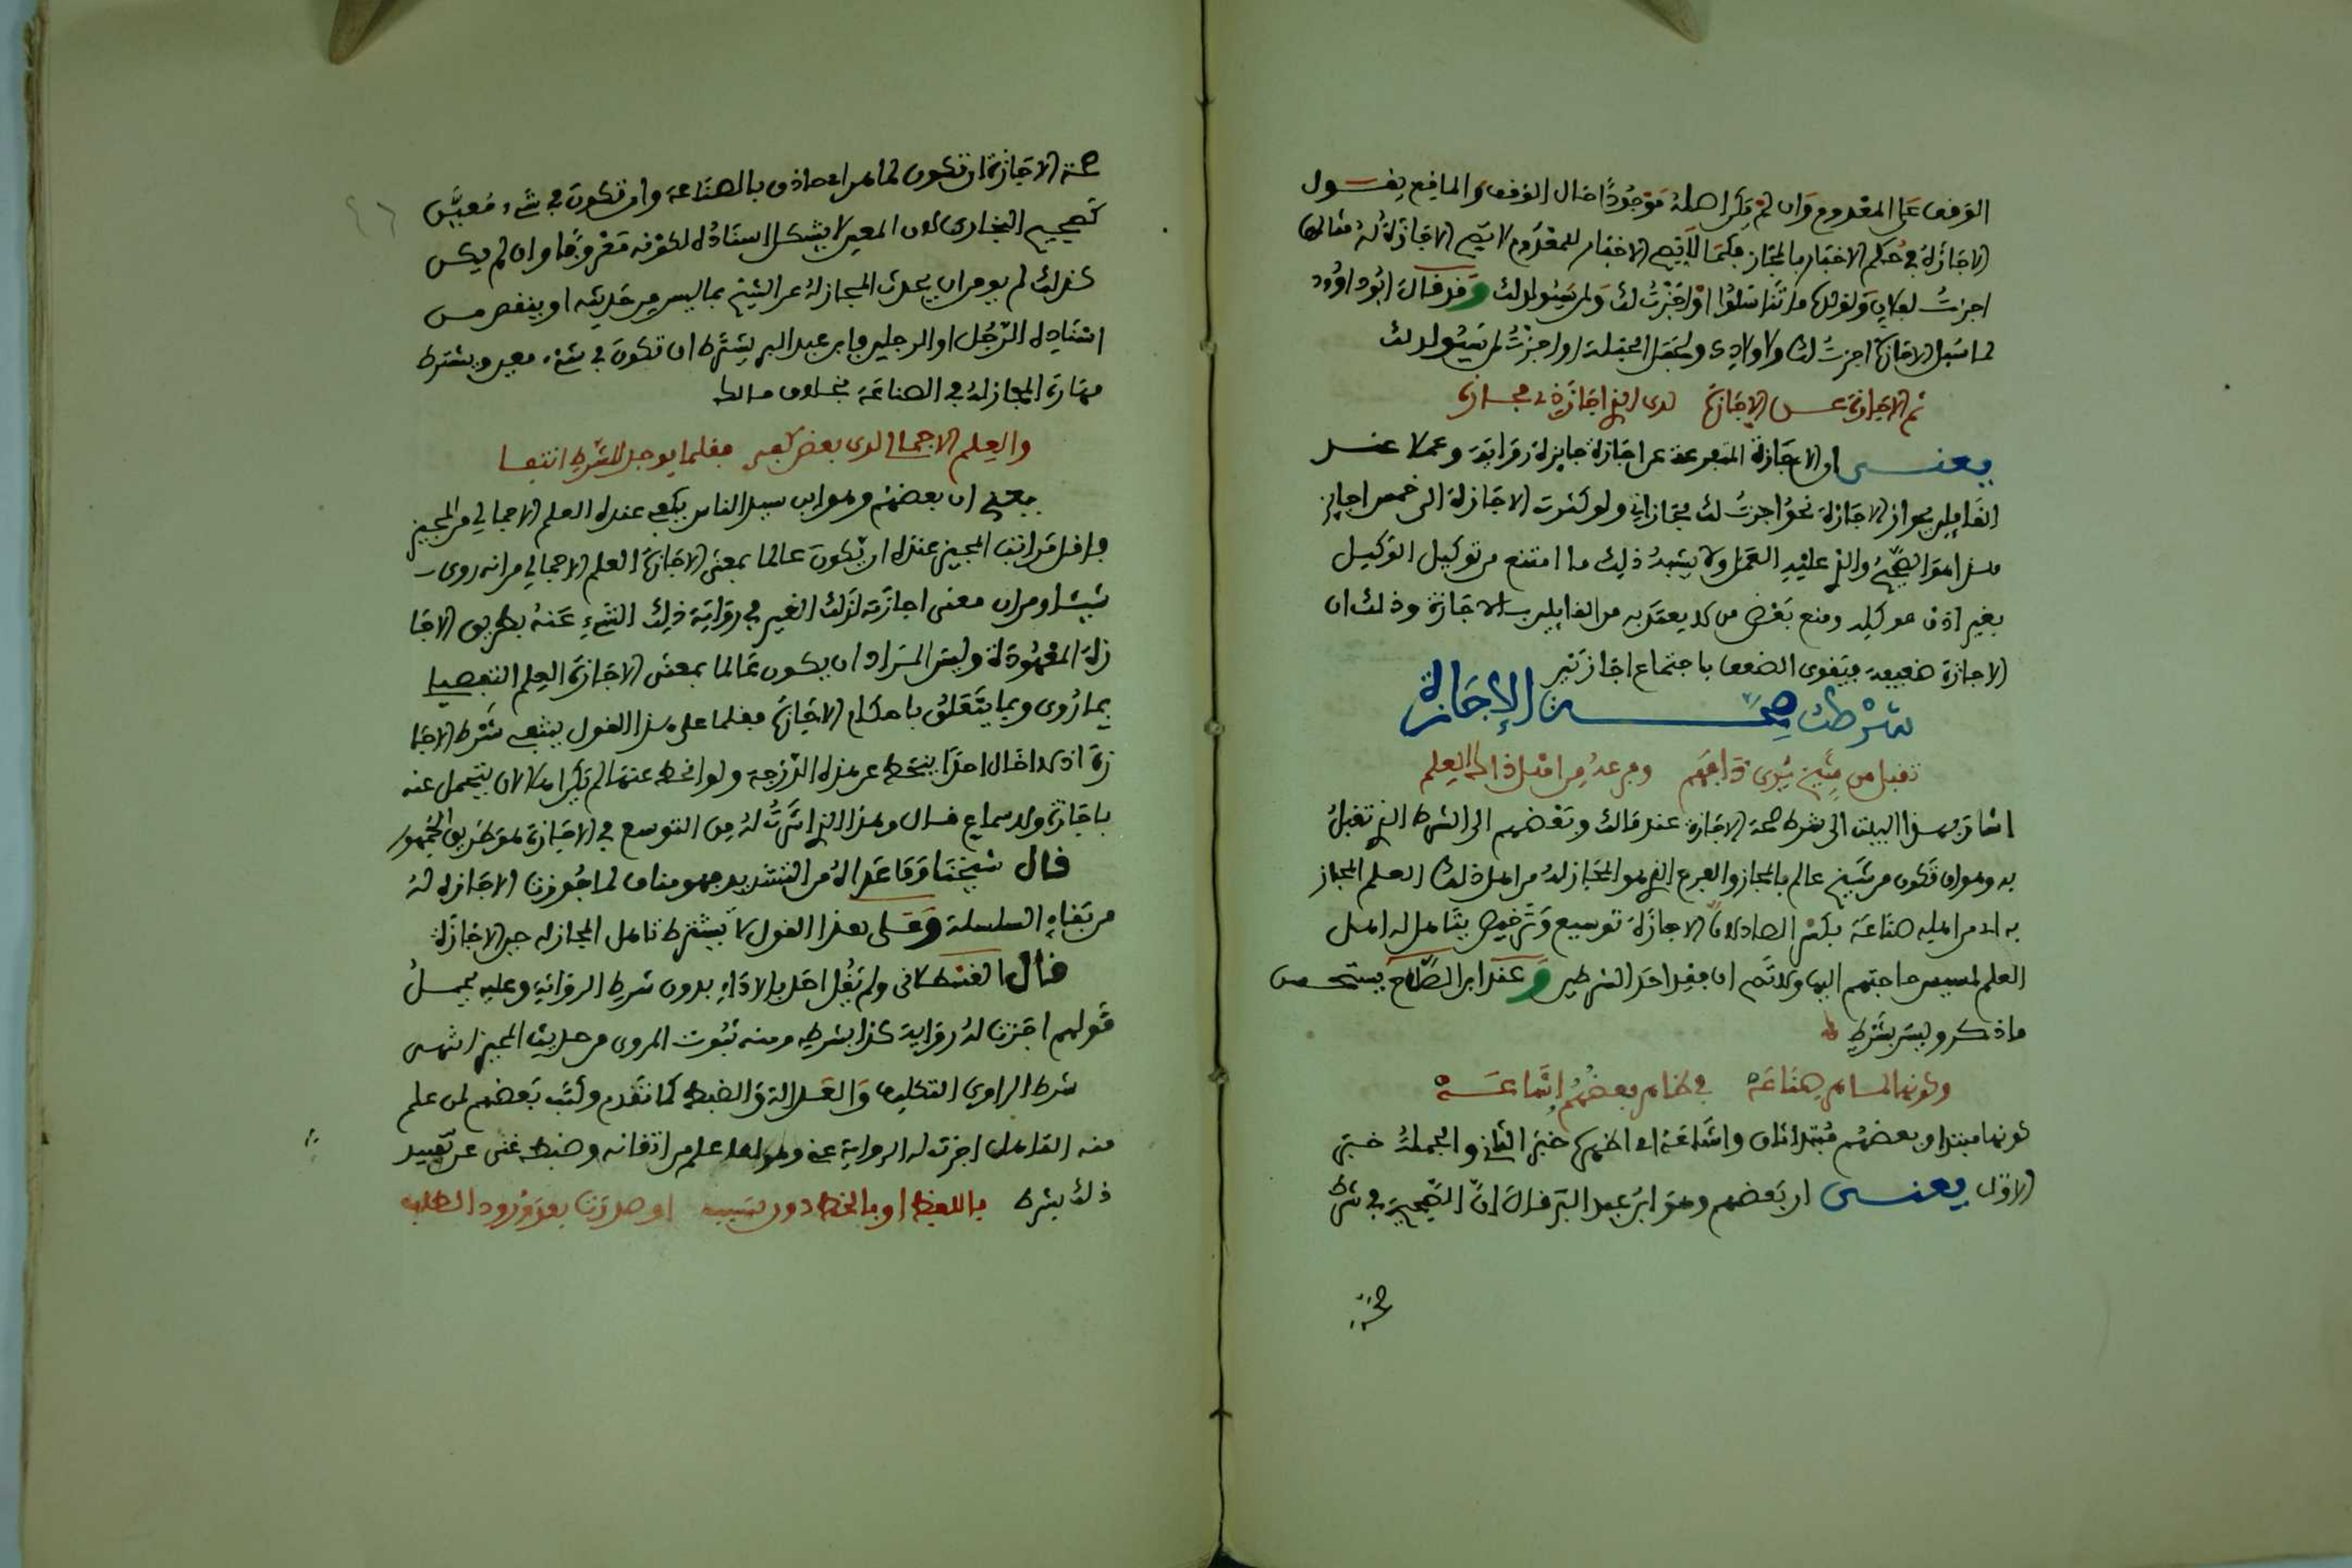 الوقف على المعدوم وان لم يكن اصله موجودا حال الوقف والمانع يقول
الاجازة في حكم الاخبار بالمجاز فكما لا يصح الاخبار للمعدوم لا تصح الاجازة له مثالها
اجزت لفلان ولولده ما تناسلوا او اجزت لك ولمن يولد لك وقد قال ابو داوود
لما سئل الاجازة اجزت لك ولاولادك ولحبل الحبلة او اجزت لمن يولد لك
ثم الاجازة عن الاجازة لدى الذي اجازه مجازة
يعنى ان الاجازة المتفرعة عن اجازة جايزة رواية وعملا عند
القايلين بجواز الاجازة نحو اجزت لك مجازاتي ولو كثرت الاجازة الى خمس اجايز
هذا هو الصحيح والذي عليه العمل ولا يشبه ذلك ما امتنع من توكيل الوكيل
بغير اذن موكله ومنع بعض من لا يعتد به من القايلين بالاجازة وذلك ان
الاجازة ضعيفة فيقوى الضعف باجتماع اجازتين
شرط صحة الاجازة
تقبل من شيخ يرى ذا فهم وفرعه من اهل ذاك العلم
اشار بهذا البيت الى شرط صحة الاجازة عند مالك وبعضهم الى الشرط الذي تقبل
به وهو ان تكون من شيخ عالم بالمجاز والفرع الذي هو المجاز له من اهل ذلك العلم المجاز
به اى من اهليه صناعة بكسر الصاد لان الاجازة توسيع وترخيص يتأهل له اهل
العلم لمسيس حاجتهم اليها ولا تصح ان فقد احد الشرطين وعند ابن الصلاح يستحسن
ما ذكر وليس بشرط
وكونها لماهر صناعة في ظاهر بعضهم اشاعه
كونها مبتدا وبعضهم مبتدا ثان واشاعه اى اظهره خبر الثاني والجملة خبر
الاول يعنى ان بعضهم وهو ابن عبد البر قال ان الصحيح في شرط
صحة الاجازة ان تكون لماهر اى حاذق بالصناعة وان تكون في شىء معين
كصحيح البخارى لان المعين لا يشكل اسناده لكونه معروفا وان لم يكن
كذلك لم يومن ان يحدث المجاز له عن الشيخ بما ليس من حديثه او ينقص من
اسناده الرجل او الرجلين فابن عبد البر يشترط ان تكون في شىء معين ويشترط
مهارة المجاز له في الصناعة بخلاف مالك
والعلم الاجمالى لدى بعض كفى فقلما يوجد للشرط انتفا
يعني ان بعضهم وهو ابن سيد الناس يكفي عنده العلم الاجمالي من المجيز
فاقل مراتب المجيز عنده ان يكون عالما بمعنى الاجازة العلم الاجمالي من انه روى
شيئا ومن ان معنى اجازته لذلك الغير في رواية ذلك الشىء عنه بطريق الاجا
زة المعهودة وليس المراد ان يكون عالما بمعنى الاجازة العلم التفصيلي
بما روى وبما يتعلق باحكام الاجازة فقلما على هذا القول ينتفي شرط الاجا
زة اذ لا اخال احدا ينحط عن هذه الدرجة ولو انحط عنها لم يكن اهلا لان يتحمل عنه
باجازة ولا سماع قال وهذا الذي اشرت له من التوسع في الاجازة هو طريق الجمهور
قال شيخنا وما عداه من التشديد فهو مناف لما جوزت الاجازة له
من بقاء السلسلة وعلى هذا القول لا يشترط تاهل المجاز له حين الاجازة
قال القسطلانى ولم يقل احد بالاداء بدون شرط الرواية وعليه يحمل
قولهم اجزت له رواية كذا بشرطه ومنه ثبوت المروى من حديث المجيز انتهى
شرط الراوى التكليف والعدالة والضبط كما تقدم وكتب بعضهم لمن علم
منه التاهل اجزت له الرواية عنى وهو لما علم من اتقانه وضبطه غنى عن تقييد
ذلك بشرط باللفظ او بالخط دون سبب او صدرت بعد ورود الطلب